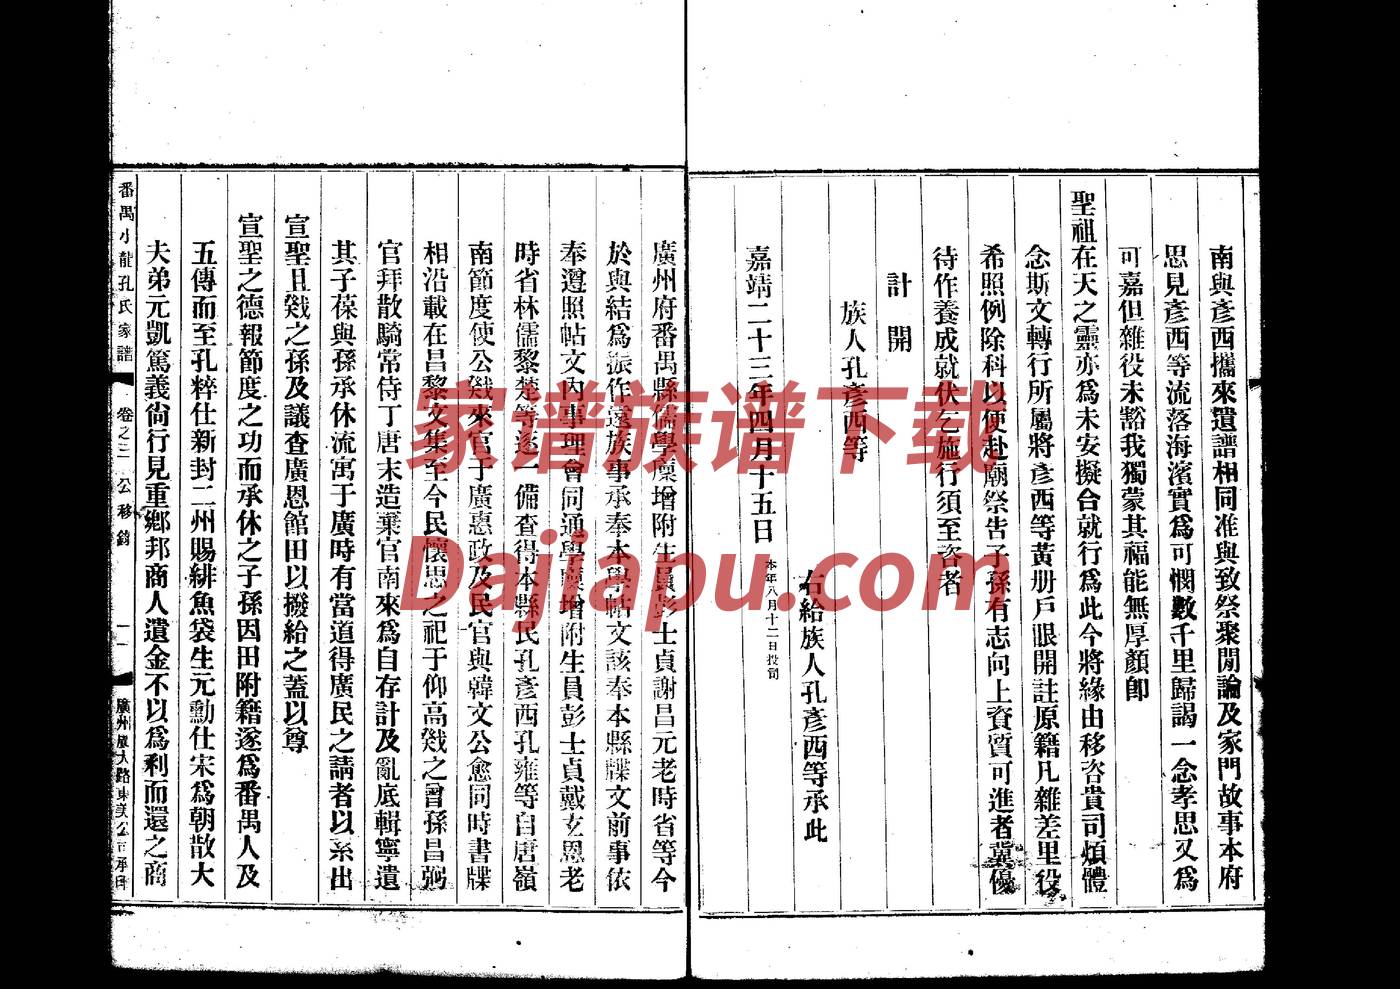 南與彥西攜來遺譜相同准與致祭聚閒論及家門故事本府
思見彥西等流落海濱實爲可憫數千里歸謁一念孝思又爲
可嘉但雜役未豁我獨蒙其福能無厚顏卽
聖祖在天之靈亦爲未安擬合就行爲此今將緣由移咨貴司煩體
念斯文轉行所屬將彥西等黃册戶眼開註原籍凡雜差里役
希照例除科以便赴廟祭告子孫有志向上資質可進者冀優
待作養成就伏乞施行須至咨者
計開
族人孔彥西等
右給族人孔彥西等承此
嘉靖二十三年四月十五日 本年八月十二日投司
廣州府番禺縣儒學廩增附生員彭士貞謝昌元老時省等今
於與結爲振作遠族事承奉本學帖文該奉本縣牒文前事依
奉遵照帖文內事理會同通學廩增附生員彭士貞戴玄恩老
時省林儒黎楚等逐一備查得本縣民孔彥西孔雍等自唐嶺
南節度使公戣來官于廣惠政及民官與韓文公愈同時書牒
相沿載在昌黎文集至今民懷思之祀于仰高戣之曾孫昌弼
官拜散騎常侍丁唐末造棄官南來爲自存計及亂底輯寧遺
其子葆與孫承休流寓于廣時有當道得廣民之請者以系出
宣聖且戣之孫及議查廣恩館田以撥給之蓋以尊
宣聖之德報節度之功而承休之子孫因田附籍遂爲番禺人及
五傳而至孔粹仕新封二州賜緋魚袋生元勳仕宋爲朝散大
夫弟元凱篤義尙行見重鄉邦商人遺金不以爲利而還之商
番禺小龍孔氏家譜 卷之三 公移錄 十一 廣州 大路東美公司承印
家谱族谱下载
Dajiapu.com